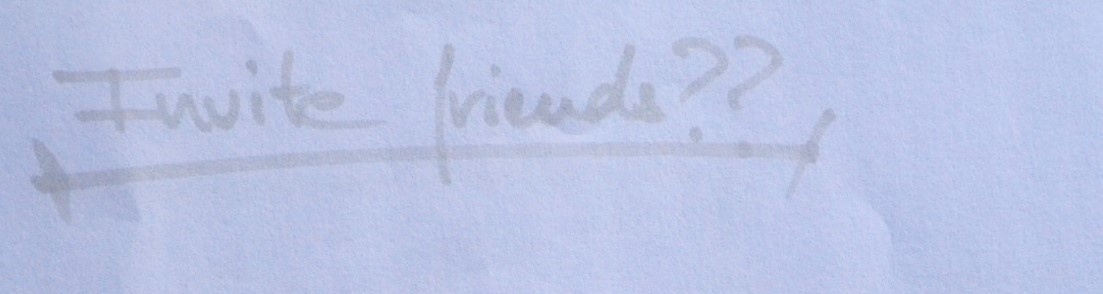 Invite friends??